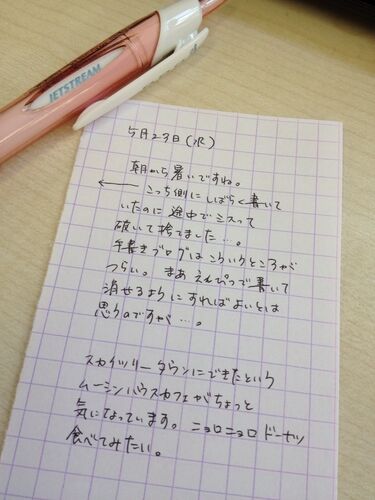 JETSTREAM
5月23日(水)
朝から暑いですね。
← こっち側にしばらく書いて
いたのに途中でミスって
破いて捨てました…。
手書きブログはこういうところが
つらい。まあえんぴつで書いて
消せるようにすればよいとは
思うのですが…。
スカイツリータウンにできたという
ムーミンハウスカフェがちょっと
気になっています。ニョロニョロドーナツ
食べてみたい。